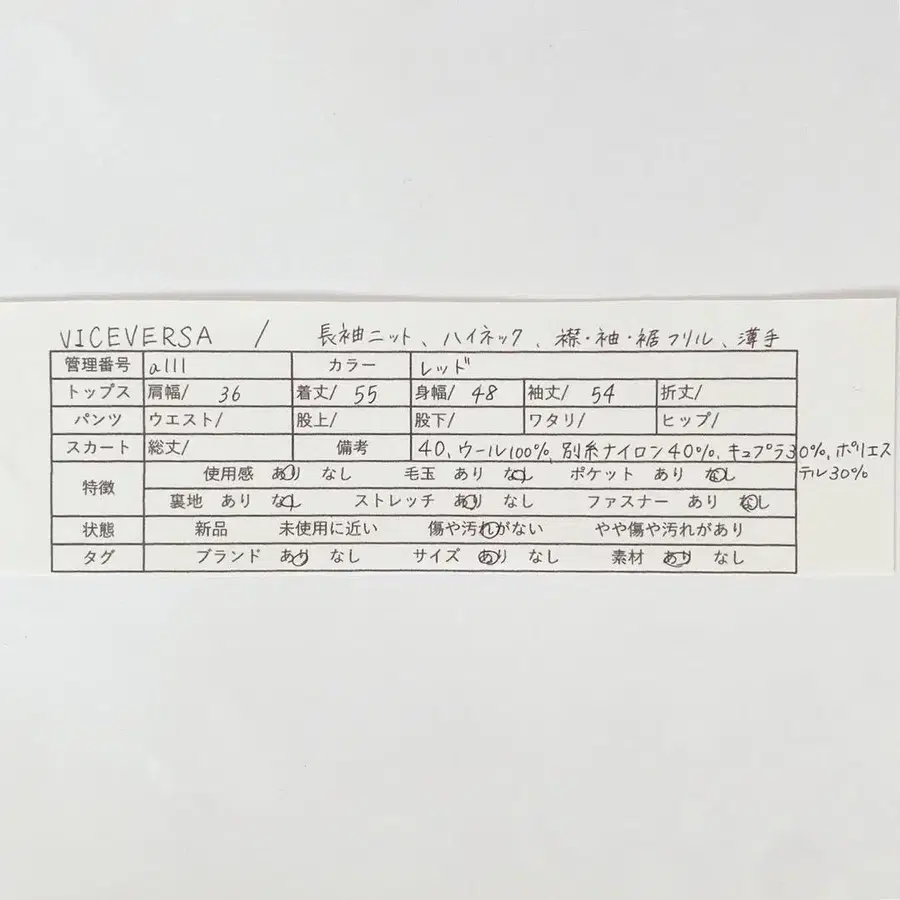 VICEVERSA / 長袖ニット、ハイネック、襟・袖・裾フリル、薄手
管理番号 a111 カラー レッド
トップス 肩幅/ 36 着丈/ 55 身幅/ 48 袖丈/ 54 折丈/
パンツ ウエスト/ 股上/ 股下/ ワタリ/ ヒップ/
スカート 総丈/ 備考 40、ウール100%、別糸ナイロン40%、キュプラ30%、ポリエス
テル30%
特徴 使用感 あり なし 毛玉 あり なし ポケット あり なし
裏地 あり なし ストレッチ あり なし ファスナー あり なし
状態 新品 未使用に近い 傷や汚れがない やや傷や汚れがあり
タグ ブランド あり なし サイズ あり なし 素材 あり なし